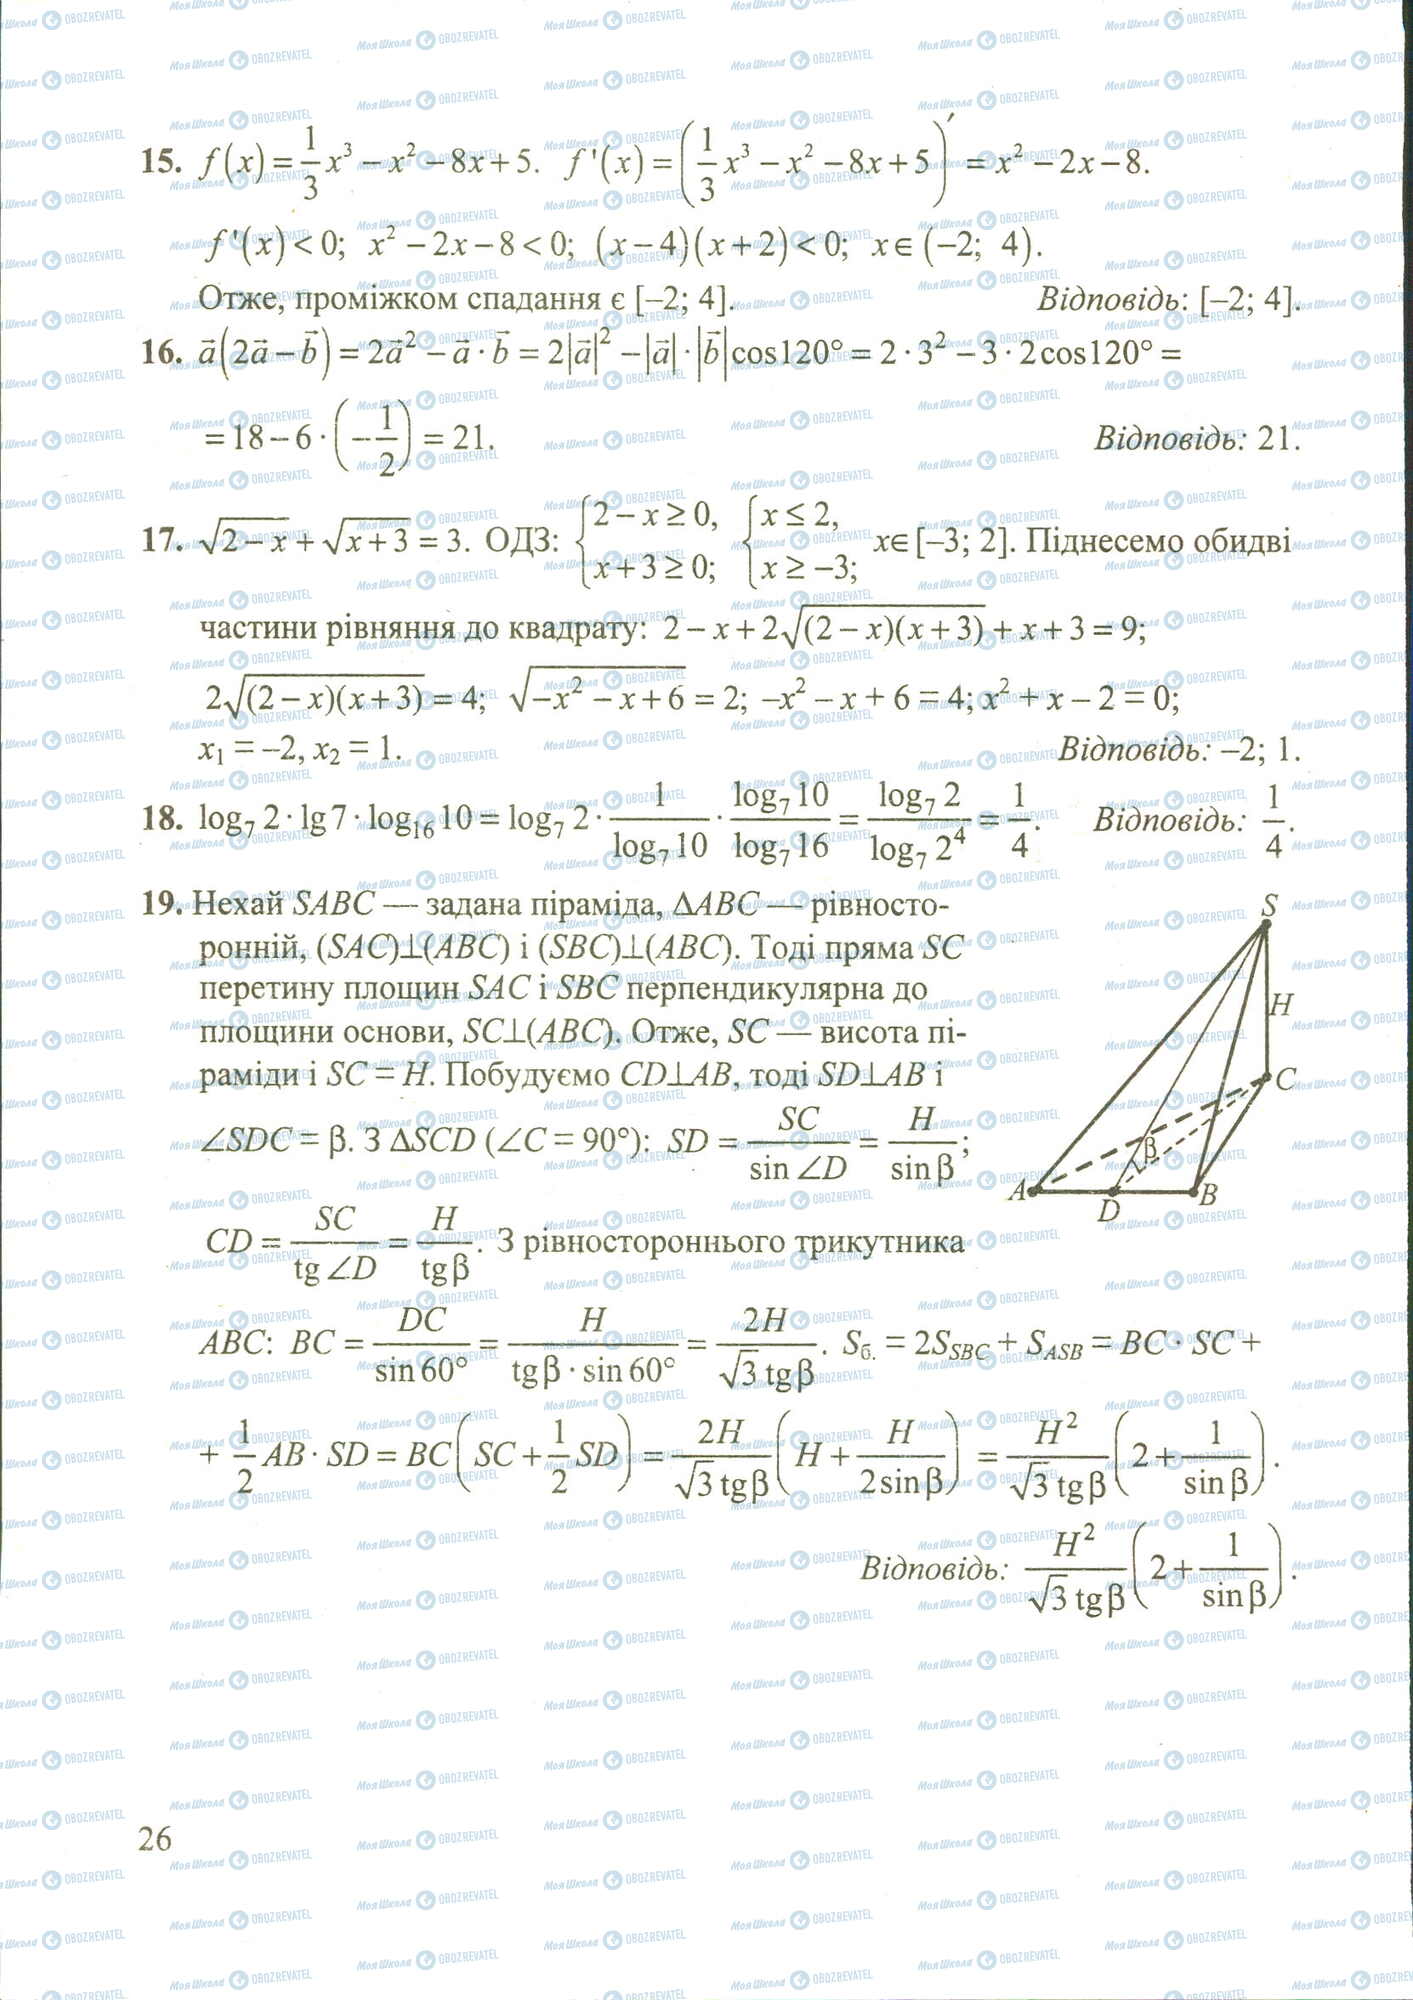 15. f(x) = 1/3 x³ – x² – 8x + 5. f'(x) = (1/3 x³ – x² – 8x + 5)′ = x² – 2x – 8.
f'(x) < 0; x² – 2x – 8 < 0; (x – 4)(x + 2) < 0; x ∈ (–2; 4).
Отже, проміжком спадання є [–2; 4]. Відповідь: [–2; 4].
16. a⃗(2a⃗ – b⃗) = 2a⃗² – a⃗ · b⃗ = 2|a⃗|² – |a⃗| · |b⃗| cos120° = 2 · 3² – 3 · 2cos120° =
= 18 – 6 · (–1/2) = 21. Відповідь: 21.
17. √(2 – x) + √(x + 3) = 3. ОДЗ: {2 – x ≥ 0, x + 3 ≥ 0; {x ≤ 2, x ≥ –3; x∈ [–3; 2]. Піднесемо обидві
частини рівняння до квадрату: 2 – x + 2√((2 – x)(x + 3)) + x + 3 = 9;
2√((2 – x)(x + 3)) = 4; √(–x² – x + 6) = 2; –x² – x + 6 = 4; x² + x – 2 = 0;
x₁ = –2, x₂ = 1. Відповідь: –2; 1.
18. log₇ 2 · lg 7 · log₁₆ 10 = log₇ 2 · 1/log₇ 10 · log₇ 10/log₇ 16 = log₇ 2/log₇ 2⁴ = 1/4. Відповідь: 1/4.
19. Нехай SABC — задана піраміда, ΔABC — рівносто-
ронній, (SAC)⊥(ABC) і (SBC)⊥(ABC). Тоді пряма SC
перетину площин SAC і SBC перпендикулярна до
площини основи, SC⊥(ABC). Отже, SC — висота пі-
раміди і SC = H. Побудуємо CD⊥AB, тоді SD⊥AB і
∠SDC = β. З ΔSCD (∠C = 90°): SD = SC/sin ∠D = H/sin β;
CD = SC/tg ∠D = H/tg β. З рівностороннього трикутника
ABC: BC = DC/sin 60° = H/(tg β · sin 60°) = 2H/(√3 tg β). Sб. = 2S_SBC + S_ASB = BC · SC +
+ 1/2 AB · SD = BC(SC + 1/2 SD) = 2H/(√3 tg β) (H + H/(2 sin β)) = H²/(√3 tg β) (2 + 1/sin β).
Відповідь: H²/(√3 tg β) (2 + 1/sin β).
S
H
C
β
A
D
B
26
Моя Школа OBOZREVATEL